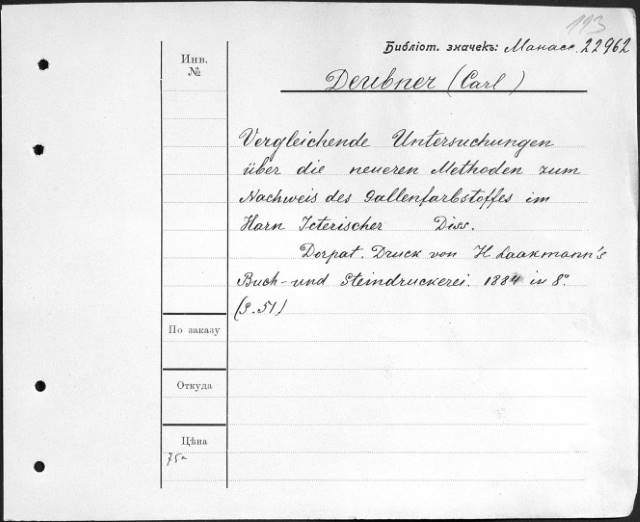 113
Библіот. значекъ: Манасс. 22962
Инв.
№
Deubner (Carl)
Vergleichende Untersuchungen
über die neueren Methoden zum
Nachweis des Gallenfarbstoffes im
Harn Icterischer Diss.
Dorpat. Druck von H Laakmann's
Buch- und Steindruckerei. 1884 in 8°.
(S. 51)
По заказу
Откуда
Цѣна